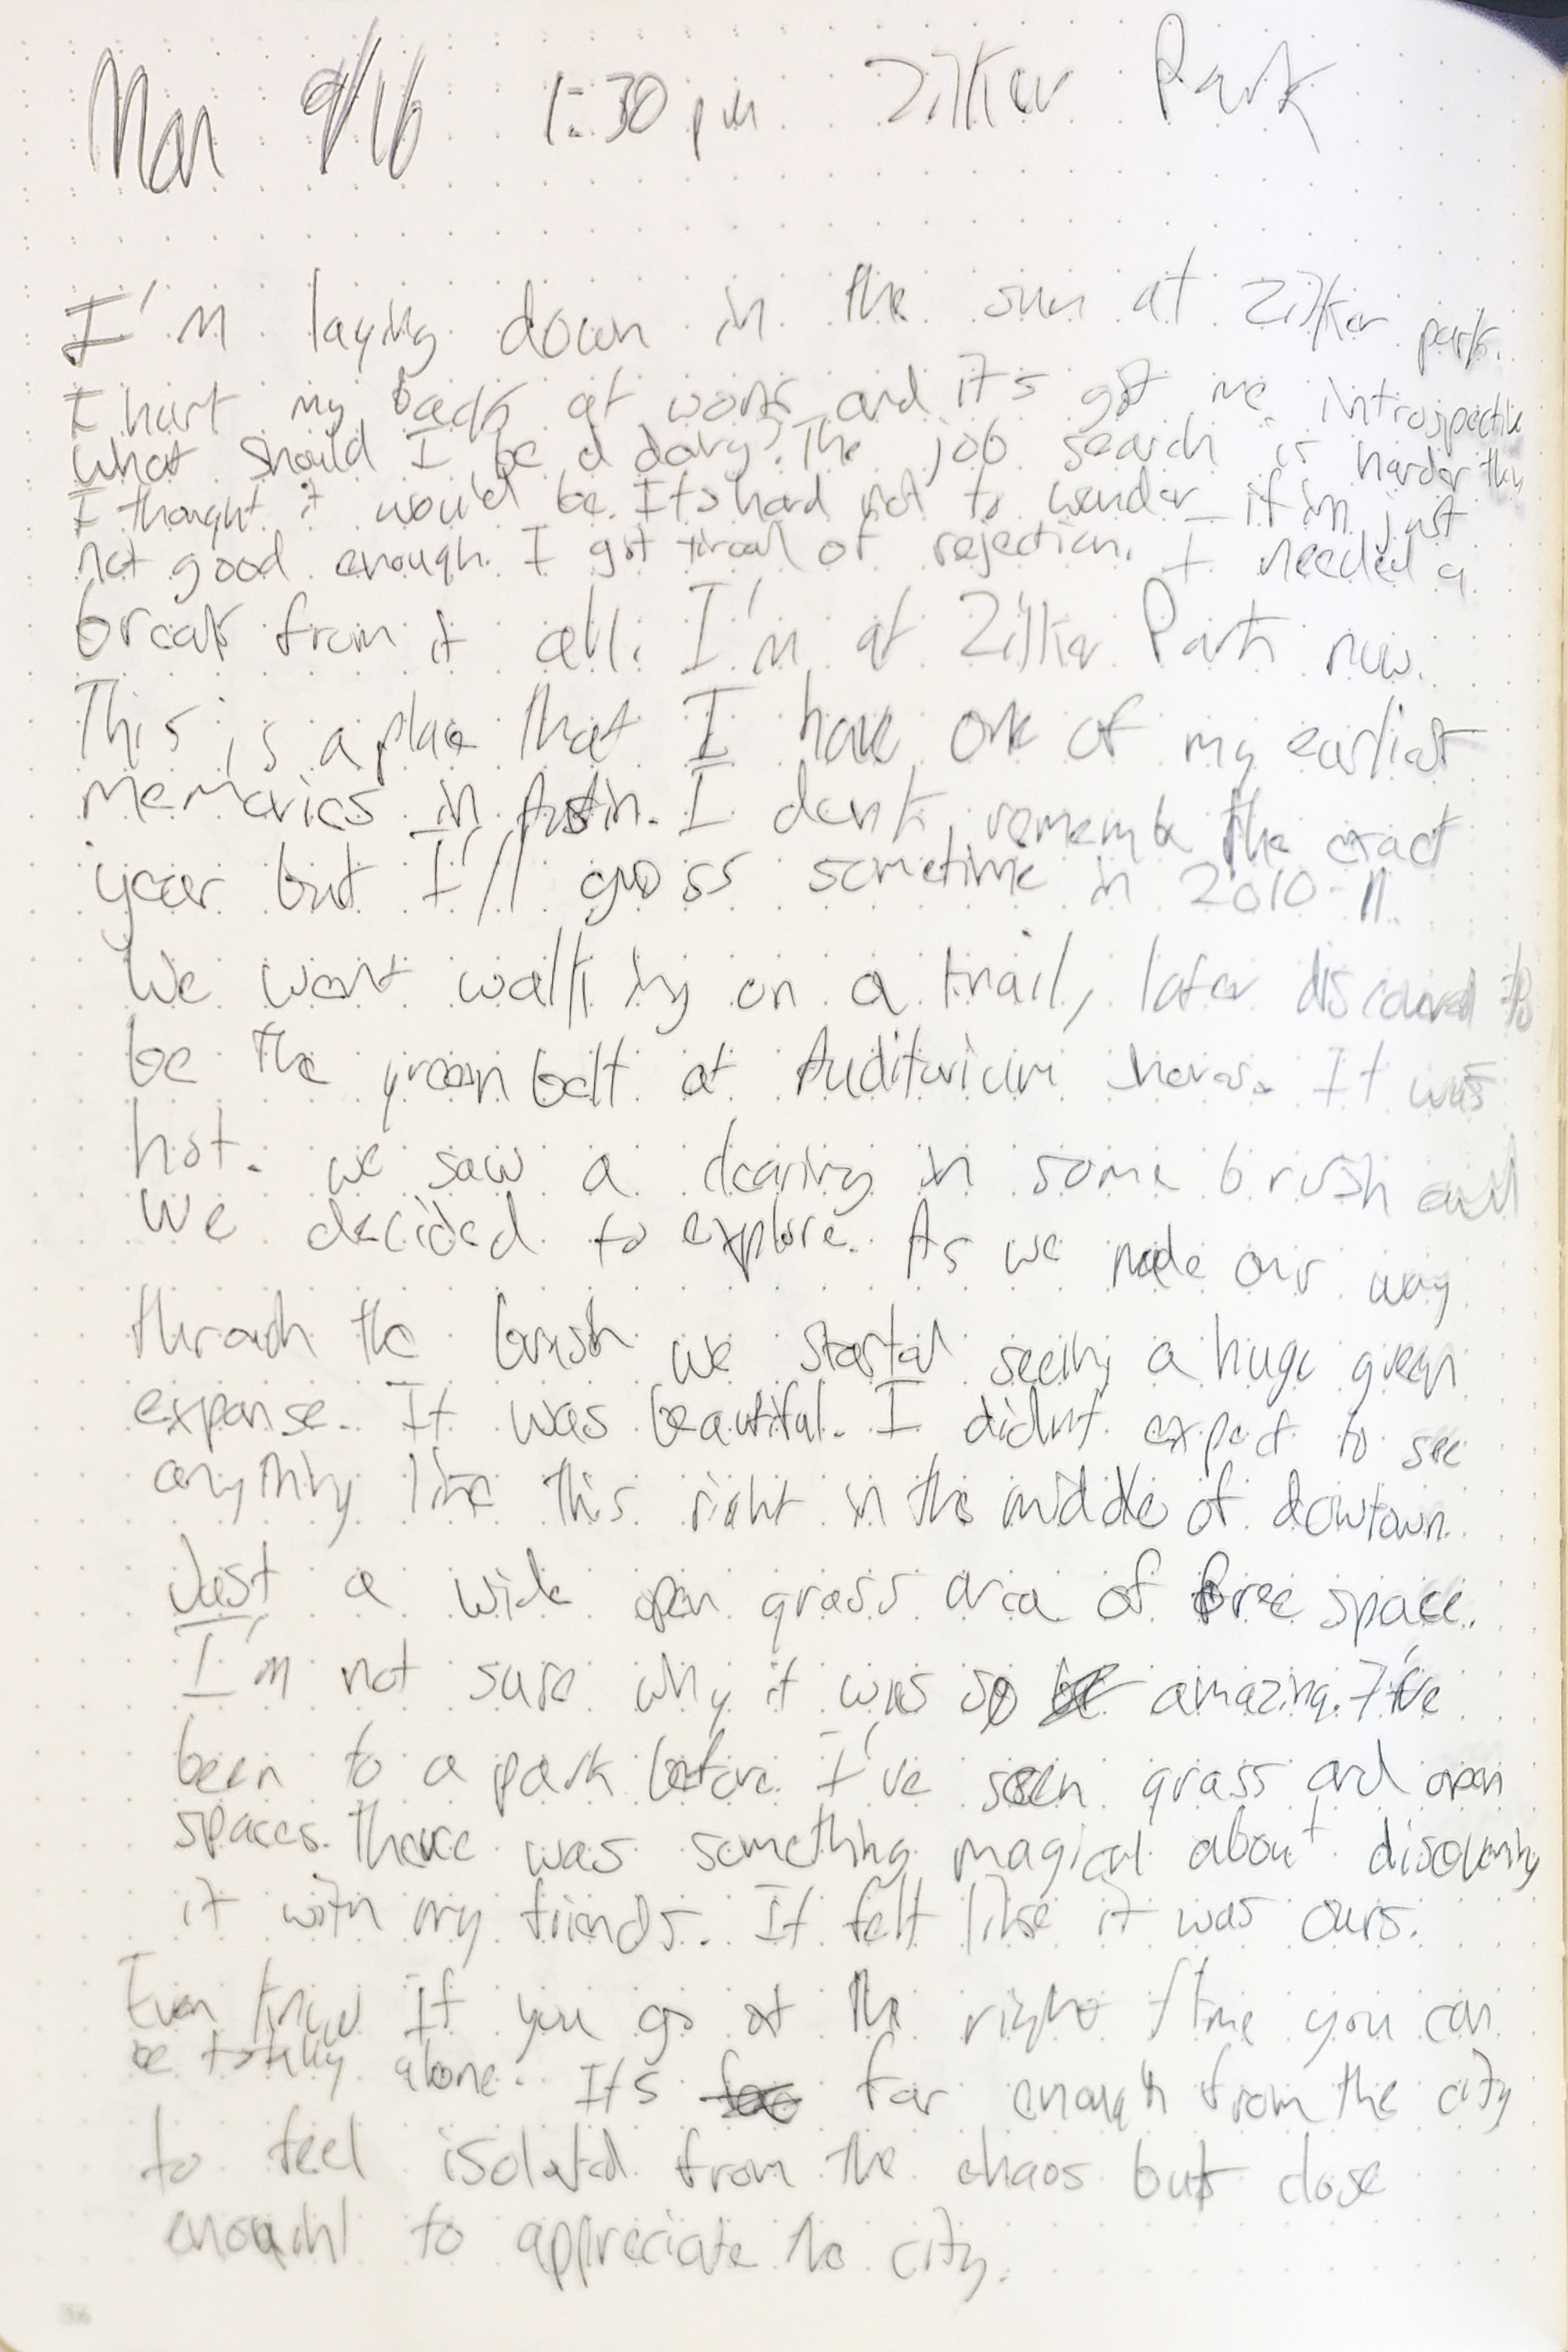 Mon 9/16 1:30 pm Zilker Park
I'm laying down in the sun at Zilker park.
I hurt my back at work and it's got me introspective
what should I be doing? The job search is harder than
I thought it would be. Its hard not to wonder if im just
not good enough. I got tired of rejection. I needed a
break from it all. I'm at Zilker Park now.
This is a place that I have one of my earliest
memories in Austin. I dont remember the exact
year but I'll guess sometime in 2010-11.
We went walking on a trail, later discovered to
be the greenbelt at Auditorium shores. It was
hot. we saw a clearing in some brush and
we decided to explore. As we made our way
through the brush we started seeing a huge green
expanse. It was beautiful. I didnt expect to see
anything like this right in the middle of dowtown.
Just a wide open grass area of free space.
I'm not sure why it was so amazing. I've
been to a park before I've seen grass and open
spaces. There was something magical about discovering
it with my friends. It felt like it was ours.
Even know if you go at the right time you can
be totally alone. Its far enough from the city
to feel isolated from the chaos but close
enough to appreciate the city.